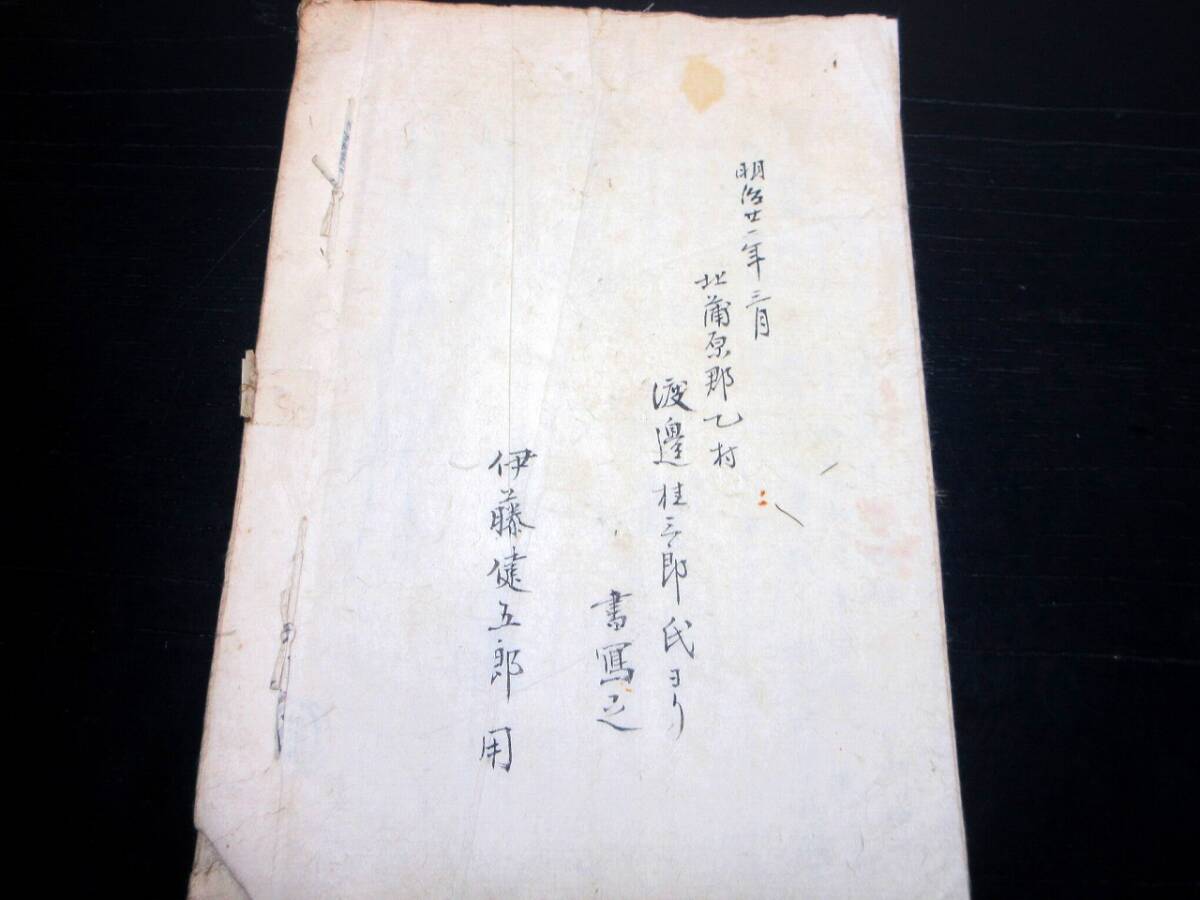 明治廿一年三月
北蒲原郡乙村
渡邊桂三郎氏ヨリ
書寫之
伊藤健五郎用